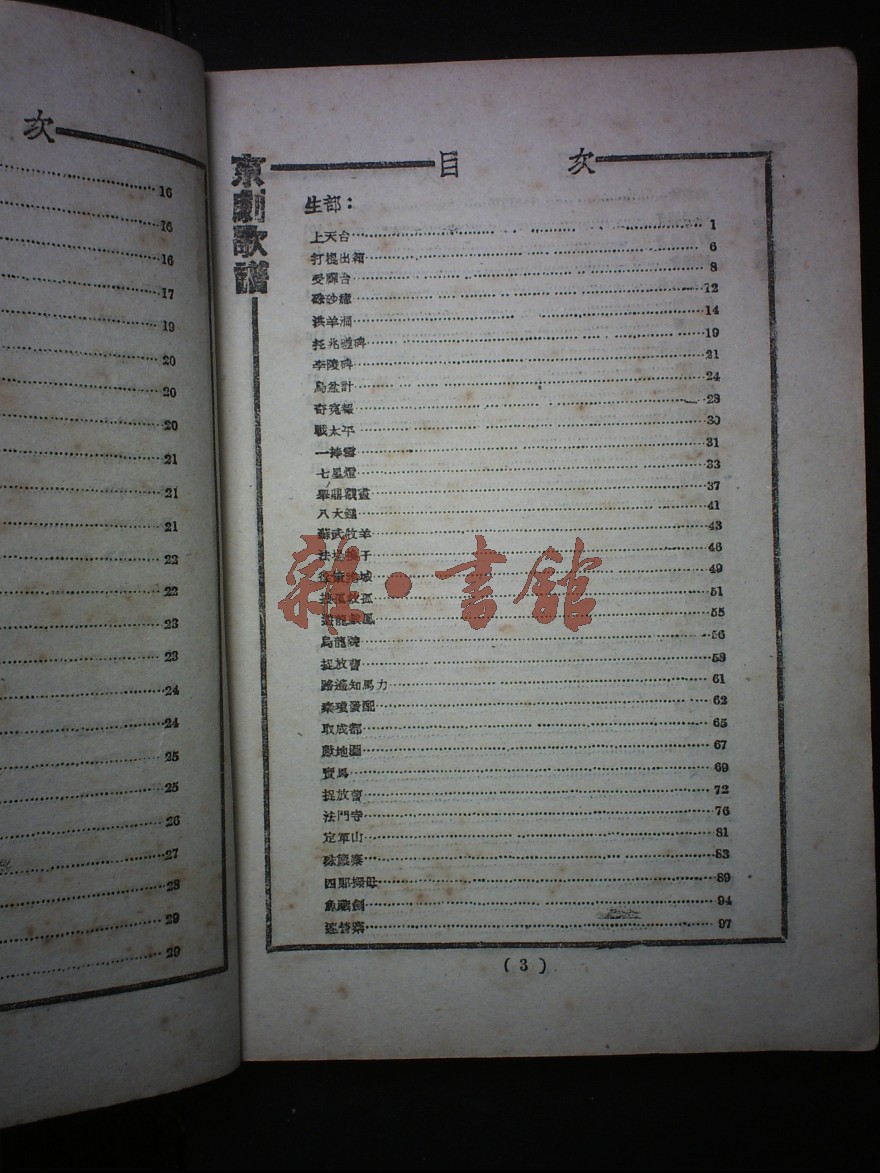 次
16
16
16
17
19
20
20
20
21
21
21
22
22
23
23
24
24
25
25
26
27
28
29
29
京劇歌譜
目 次
生部：
上天台 1
打棍出箱 6
受禪台 8
硃砂痣 12
洪羊洞 14
托兆碰碑 19
李陵碑 21
烏盆計 24
奇冤報 28
戰太平 30
一捧雪 31
七星燈 33
舉鼎觀畫 37
八大鎚 41
蘇武牧羊 43
法場換子 46
徐策跑城 49
搜孤救孤 51
遊龍戲鳳 55
烏龍院 56
捉放曹 58
路遙知馬力 61
秦瓊發配 62
取成都 65
獻地圖 67
賣馬 69
捉放曹 72
法門寺 76
定軍山 81
珠簾寨 83
四郎探母 89
魚藏劍 94
連營寨 97
( 3 )
雜·書館